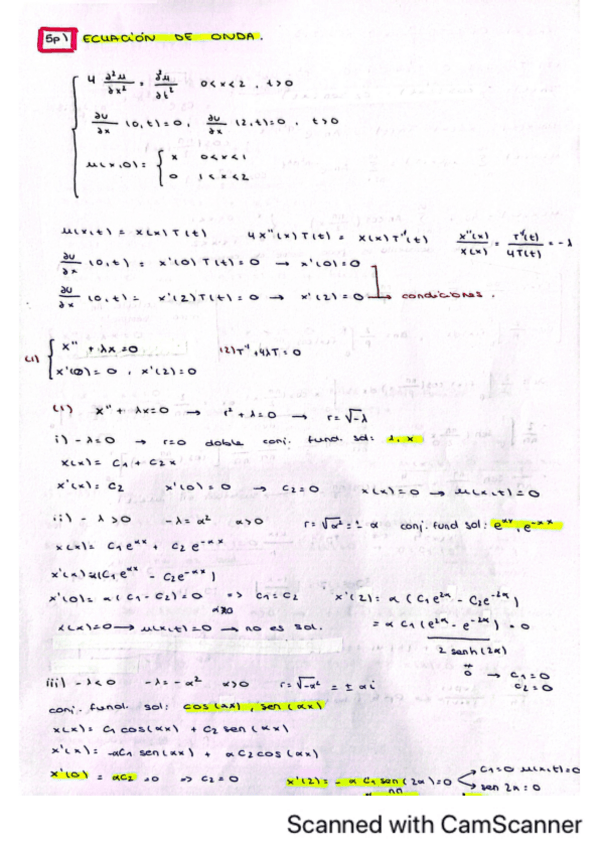 5p) ECUACIÓN DE ONDA.
4 ∂²u/∂x² = ∂²u/∂t²   0<x<2, t>0
∂u/∂x (0,t)=0, ∂u/∂x (2,t)=0, t>0
u(x,0)= { x 0<x<1
0 1<x<2
u(x,t) = X(x) T(t)   4X''(x)T(t) = X(x)T''(t)   X''(x)/X(x) = T''(t)/4T(t) = -λ
∂u/∂x (0,t) = X'(0) T(t) = 0 → X'(0)=0
∂u/∂x (0,t) = X'(2)T(t)=0 → X'(2)=0 → condiciones.
(1) { X'' + λX=0   (2) T''+4λT=0
X'(0)=0, X'(2)=0
(1) X''+ λX=0 → r²+λ=0 → r=√-λ
i) -λ=0 → r=0 doble conj. fund. sol: 1, x
X(x)= C1 + C2x
X'(x)= C2   X'(0)=0 → C2=0   X(x)=0 → u(x,t)=0
ii) -λ>0   -λ=α²   α>0   r=√α²=±α   conj. fund sol: e^αx, e^-αx
X(x)= C1e^αx + C2e^-αx
X'(x)=α(C1e^αx - C2e^-αx)
X'(0)=α(C1-C2)=0 ⇒ C1=C2   X'(2)= α(C1e^2α - C2e^-2α)
α>0
X(x)=0 → u(x,t)=0 → no es sol.   = αC1(e^2α - e^-2α) = 0
2 senh(2α)
≠0 → C1=0
C2=0
iii) -λ<0   -λ=-α²   α>0   r=√-α² = ±αi
conj. fund. sol: cos(αx), sen(αx)
X(x)= C1 cos(αx) + C2 sen(αx)
X'(x)= -αC1 sen(αx) + αC2 cos(αx)
X'(0) = αC2 =0 ⇒ C2=0   X'(2)= -αC1 sen(2α)=0 C1=0 u(x,t)=0
sen 2α=0
Scanned with CamScanner